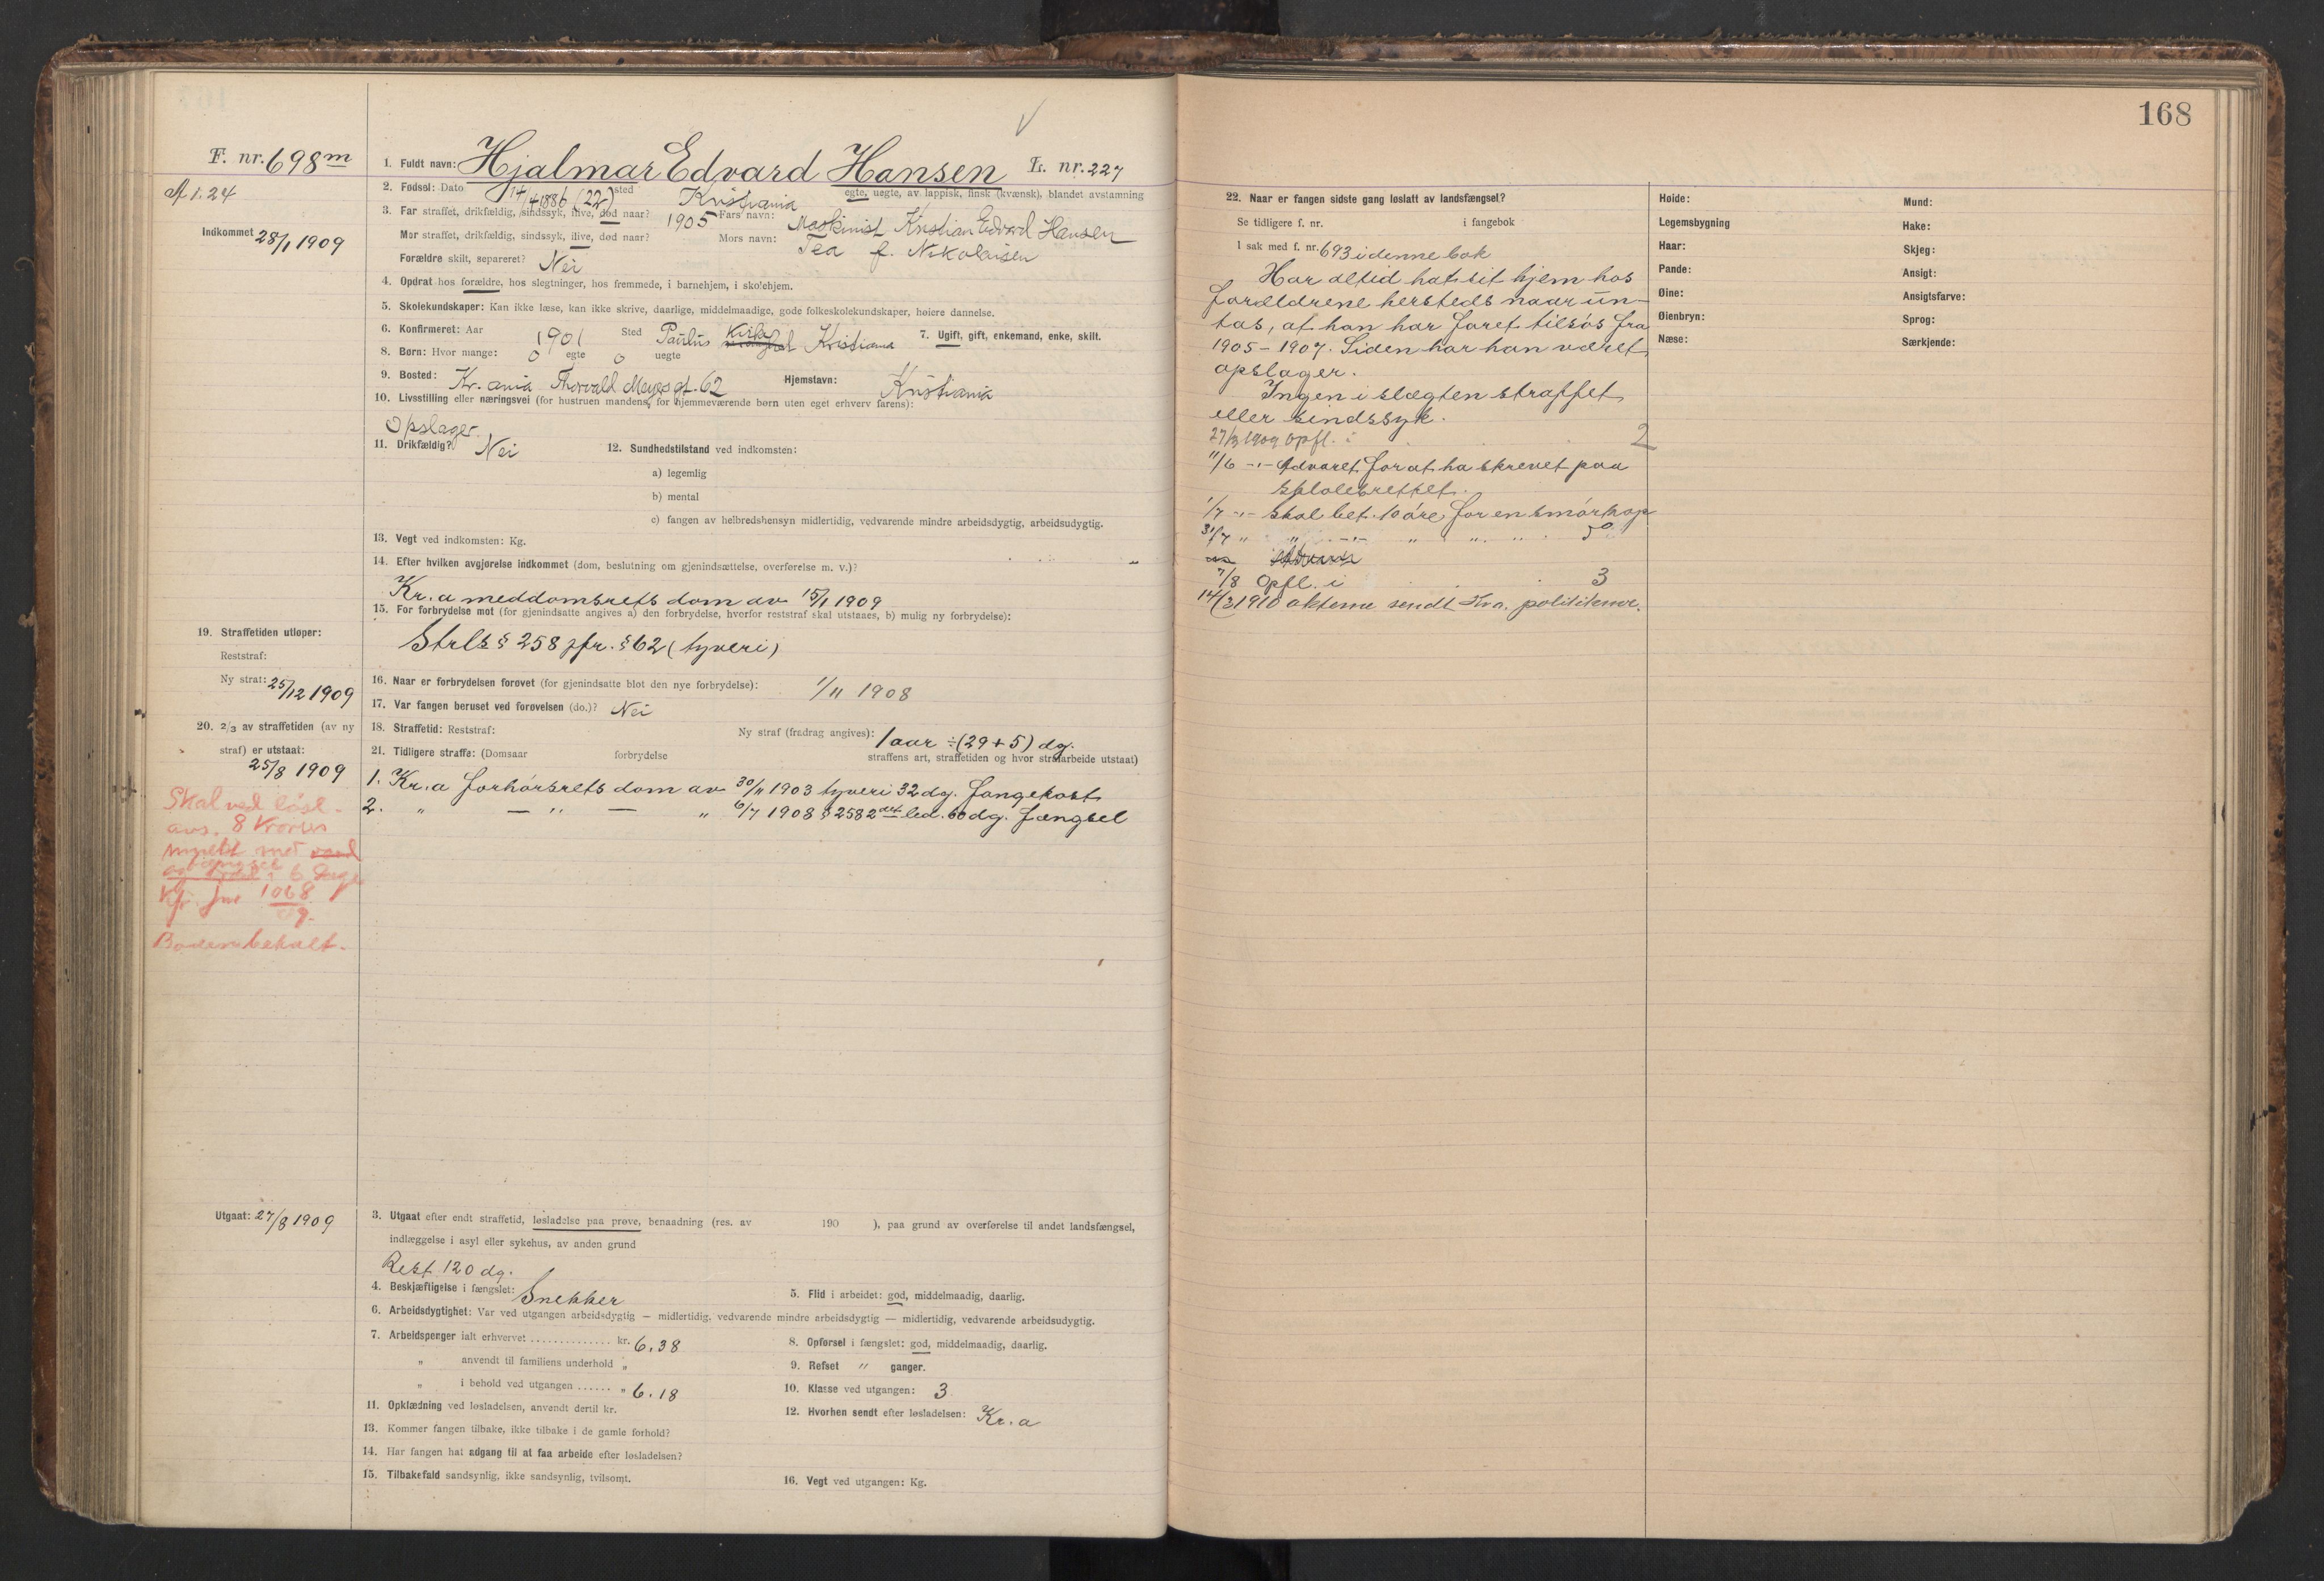 168
F. nr. 698 m
A 1. 24
Indkommet 28/1 1909
1. Fuldt navn: Hjalmar Edvard Hansen L. nr. 227
2. Fødsel: Dato 14/4 1886 (22) sted Kristiania egte, uegte, av lappisk, finsk (kvænsk), blandet avstamning
3. Far straffet, drikfældig, sindssyk, ilive, død naar? 1905 Fars navn: Maskinist Kristian Edvard Hansen
Mor straffet, drikfældig, sindssyk, ilive, død naar? Mors navn: Tea f. Nikolaisen
Forældre skilt, separeret? Nei
4. Opdrat hos forældre, hos slegtninger, hos fremmede, i barnehjem, i skolehjem.
5. Skolekundskaper: Kan ikke læse, kan ikke skrive, daarlige, middelmaadige, gode folkeskolekundskaper, høiere dannelse.
6. Konfirmeret: Aar 1901 Sted Paulus Kirke Kristiania 7. Ugift, gift, enkemand, enke, skilt.
8. Børn: Hvor mange: 0 egte 0 uegte
9. Bosted: Kr.ania Thorvald Meyers gt. 62 Hjemstavn: Kristiania
10. Livsstilling eller næringsvei (for hustruen mandens, for hjemmeværende børn uten eget erhverv farens):
Opslager.
11. Drikfældig? Nei 12. Sundhedstilstand ved indkomsten:
a) legemlig
b) mental
c) fangen av helbredshensyn midlertidig, vedvarende mindre arbeidsdygtig, arbeidsudygtig.
13. Vegt ved indkomsten: Kg.
14. Efter hvilken avgjørelse indkommet (dom, beslutning om gjenindsættelse, overførelse m. v.)?
Kr.a meddomsrets dom av 15/1 1909
15. For forbrydelse mot (for gjenindsatte angives a) den forbrydelse, hvorfor reststraf skal utstaaes, b) mulig ny forbrydelse):
Strls § 258 jfr. § 62 (tyveri)
16. Naar er forbrydelsen forøvet (for gjenindsatte blot den nye forbrydelse): 1/11 1908
17. Var fangen beruset ved forøvelsen (do.)? Nei
18. Straffetid: Reststraf: Ny straf (fradrag angives): 1 aar ÷ (29 + 5) dg.
21. Tidligere straffe: (Domsaar forbrydelse straffens art, straffetiden og hvor strafarbeide utstaat)
1. Kr.a forhørsrets dom av 30/11 1903 tyveri 32 dg. Fangekost
2. " — " — " 6/7 1908 § 258 2det led. 60 dg. Fængsel
19. Straffetiden utløper:
Reststraf:
Ny straf: 25/12 1909
20. 2/3 av straffetiden (av ny
straf) er utstaat:
25/8 1909
Skal ved løsl.
avs. 8 Kroner
fængsel i 6 Dage
Kfr. jnr 1068
09.
Boden betalt.
Utgaat: 27/8 1909
3. Utgaat efter endt straffetid, løsladelse paa prøve, benaadning (res. av 190 ), paa grund av overførelse til andet landsfængsel,
indlæggelse i asyl eller sykehus, av anden grund
Rest 120 dg.
4. Beskjæftigelse i fængslet: Snekker 5. Flid i arbeidet: god, middelmaadig, daarlig.
6. Arbeidsdygtighet: Var ved utgangen arbeidsdygtig — midlertidig, vedvarende mindre arbeidsdygtig — midlertidig, vedvarende arbeidsudygtig.
7. Arbeidspenger ialt erhvervet .............. kr. 6.38 8. Opførsel i fængslet: god, middelmaadig, daarlig.
" anvendt til familiens underhold " 9. Refset " ganger.
" i behold ved utgangen ...... " 6.18 10. Klasse ved utgangen: 3
11. Opklædning ved løsladelsen, anvendt dertil kr. 12. Hvorhen sendt efter løsladelsen: Kr.a
13. Kommer fangen tilbake, ikke tilbake i de gamle forhold?
14. Har fangen hat adgang til at faa arbeide efter løsladelsen?
15. Tilbakefald sandsynlig, ikke sandsynlig, tvilsomt. 16. Vegt ved utgangen: Kg.
22. Naar er fangen sidste gang løslatt av landsfængsel?
Se tidligere f. nr. i fangebok
I sak med f. nr. 693 i denne bok
Har altid hat sit hjem hos
forældrene hersteds naar un-
tas, at han har faret tilsøs fra
1905 – 1907. Siden har han været
opslager.
Ingen i slægten straffet
eller sindssyk.
27/3 1909 Opfl. i 2
11/6 -"- Advaret for at ha skrevet paa
1/7 -"- Skal bet. 10 øre for en smørkop
31/7 " " -"- " " " 5
7/8 Opfl. i 3
14/2 1910 akterne sendt Kra. politikmr.
Høide:
Legemsbygning
Haar:
Pande:
Øine:
Øienbryn:
Næse:
Mund:
Hake:
Skjeg:
Ansigt:
Ansigtsfarve:
Sprog:
Særkjende: